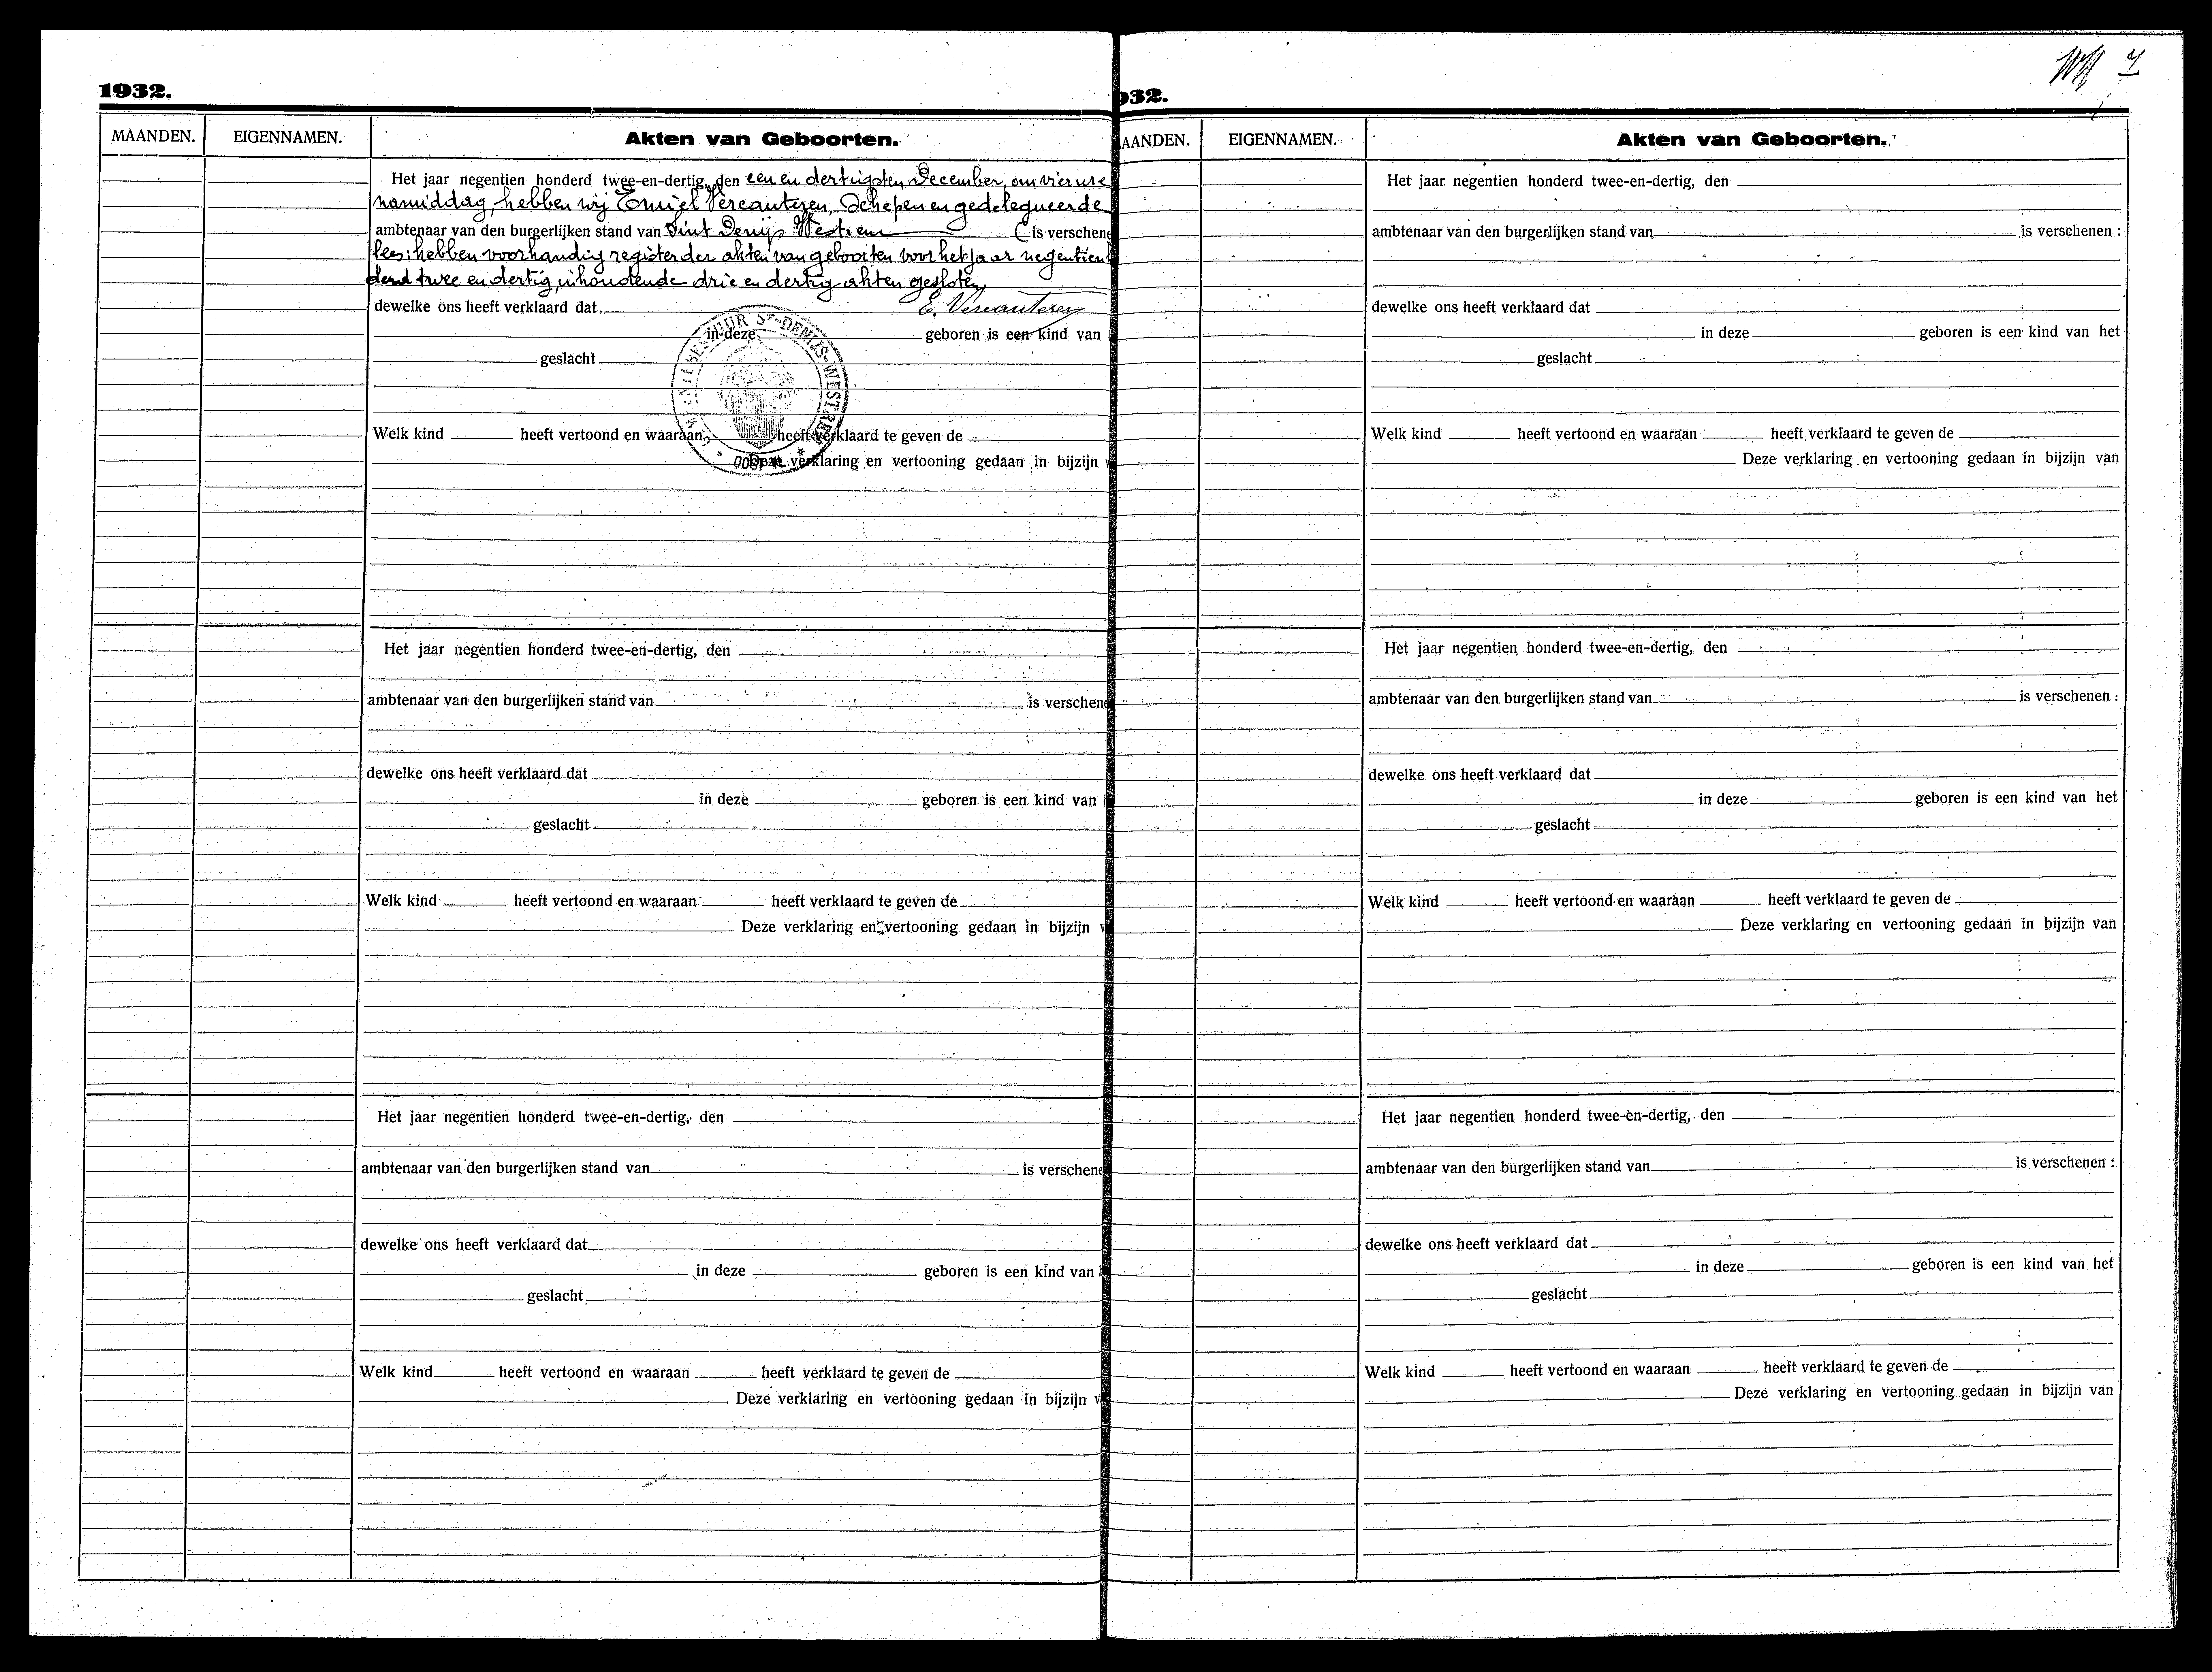 1932.
MAANDEN. EIGENNAMEN. Akten van Geboorten.
Het jaar negentien honderd twee-en-dertig, den een en dertigsten December, om vier ure
namiddag, hebben wij Emiel Vercauteren, Schepen en gedelegueerde
ambtenaar van den burgerlijken stand van Sint Denijs Westrem (is verschene
lees: hebben voorhandig register der akten van geboorten voor het jaar negentien
derd twee en dertig, inhoudende drie en dertig akten gesloten,
dewelke ons heeft verklaard dat E. Vercauteren
in deze geboren is een kind van
geslacht
GEMEENTEBESTUUR ST-DENIJS-WESTREM
Welk kind heeft vertoond en waaraan heeft verklaard te geven de
Deze verklaring en vertooning gedaan in bijzijn v
Het jaar negentien honderd twee-en-dertig, den
ambtenaar van den burgerlijken stand van is verschene
dewelke ons heeft verklaard dat
in deze geboren is een kind van
geslacht
Welk kind heeft vertoond en waaraan heeft verklaard te geven de
Deze verklaring en vertooning gedaan in bijzijn v
Het jaar negentien honderd twee-en-dertig, den
ambtenaar van den burgerlijken stand van is verschene
dewelke ons heeft verklaard dat
in deze geboren is een kind van
geslacht
Welk kind heeft vertoond en waaraan heeft verklaard te geven de
Deze verklaring en vertooning gedaan in bijzijn v
932.
AANDEN. EIGENNAMEN. Akten van Geboorten.
Het jaar negentien honderd twee-en-dertig, den
ambtenaar van den burgerlijken stand van is verschenen :
dewelke ons heeft verklaard dat
in deze geboren is een kind van het
geslacht
Welk kind heeft vertoond en waaraan heeft verklaard te geven de
Deze verklaring en vertooning gedaan in bijzijn van
Het jaar negentien honderd twee-en-dertig, den
ambtenaar van den burgerlijken stand van is verschenen :
dewelke ons heeft verklaard dat
in deze geboren is een kind van het
geslacht
Welk kind heeft vertoond en waaraan heeft verklaard te geven de
Deze verklaring en vertooning gedaan in bijzijn van
Het jaar negentien honderd twee-en-dertig, den
ambtenaar van den burgerlijken stand van is verschenen :
dewelke ons heeft verklaard dat
in deze geboren is een kind van het
geslacht
Welk kind heeft vertoond en waaraan heeft verklaard te geven de
Deze verklaring en vertooning gedaan in bijzijn van